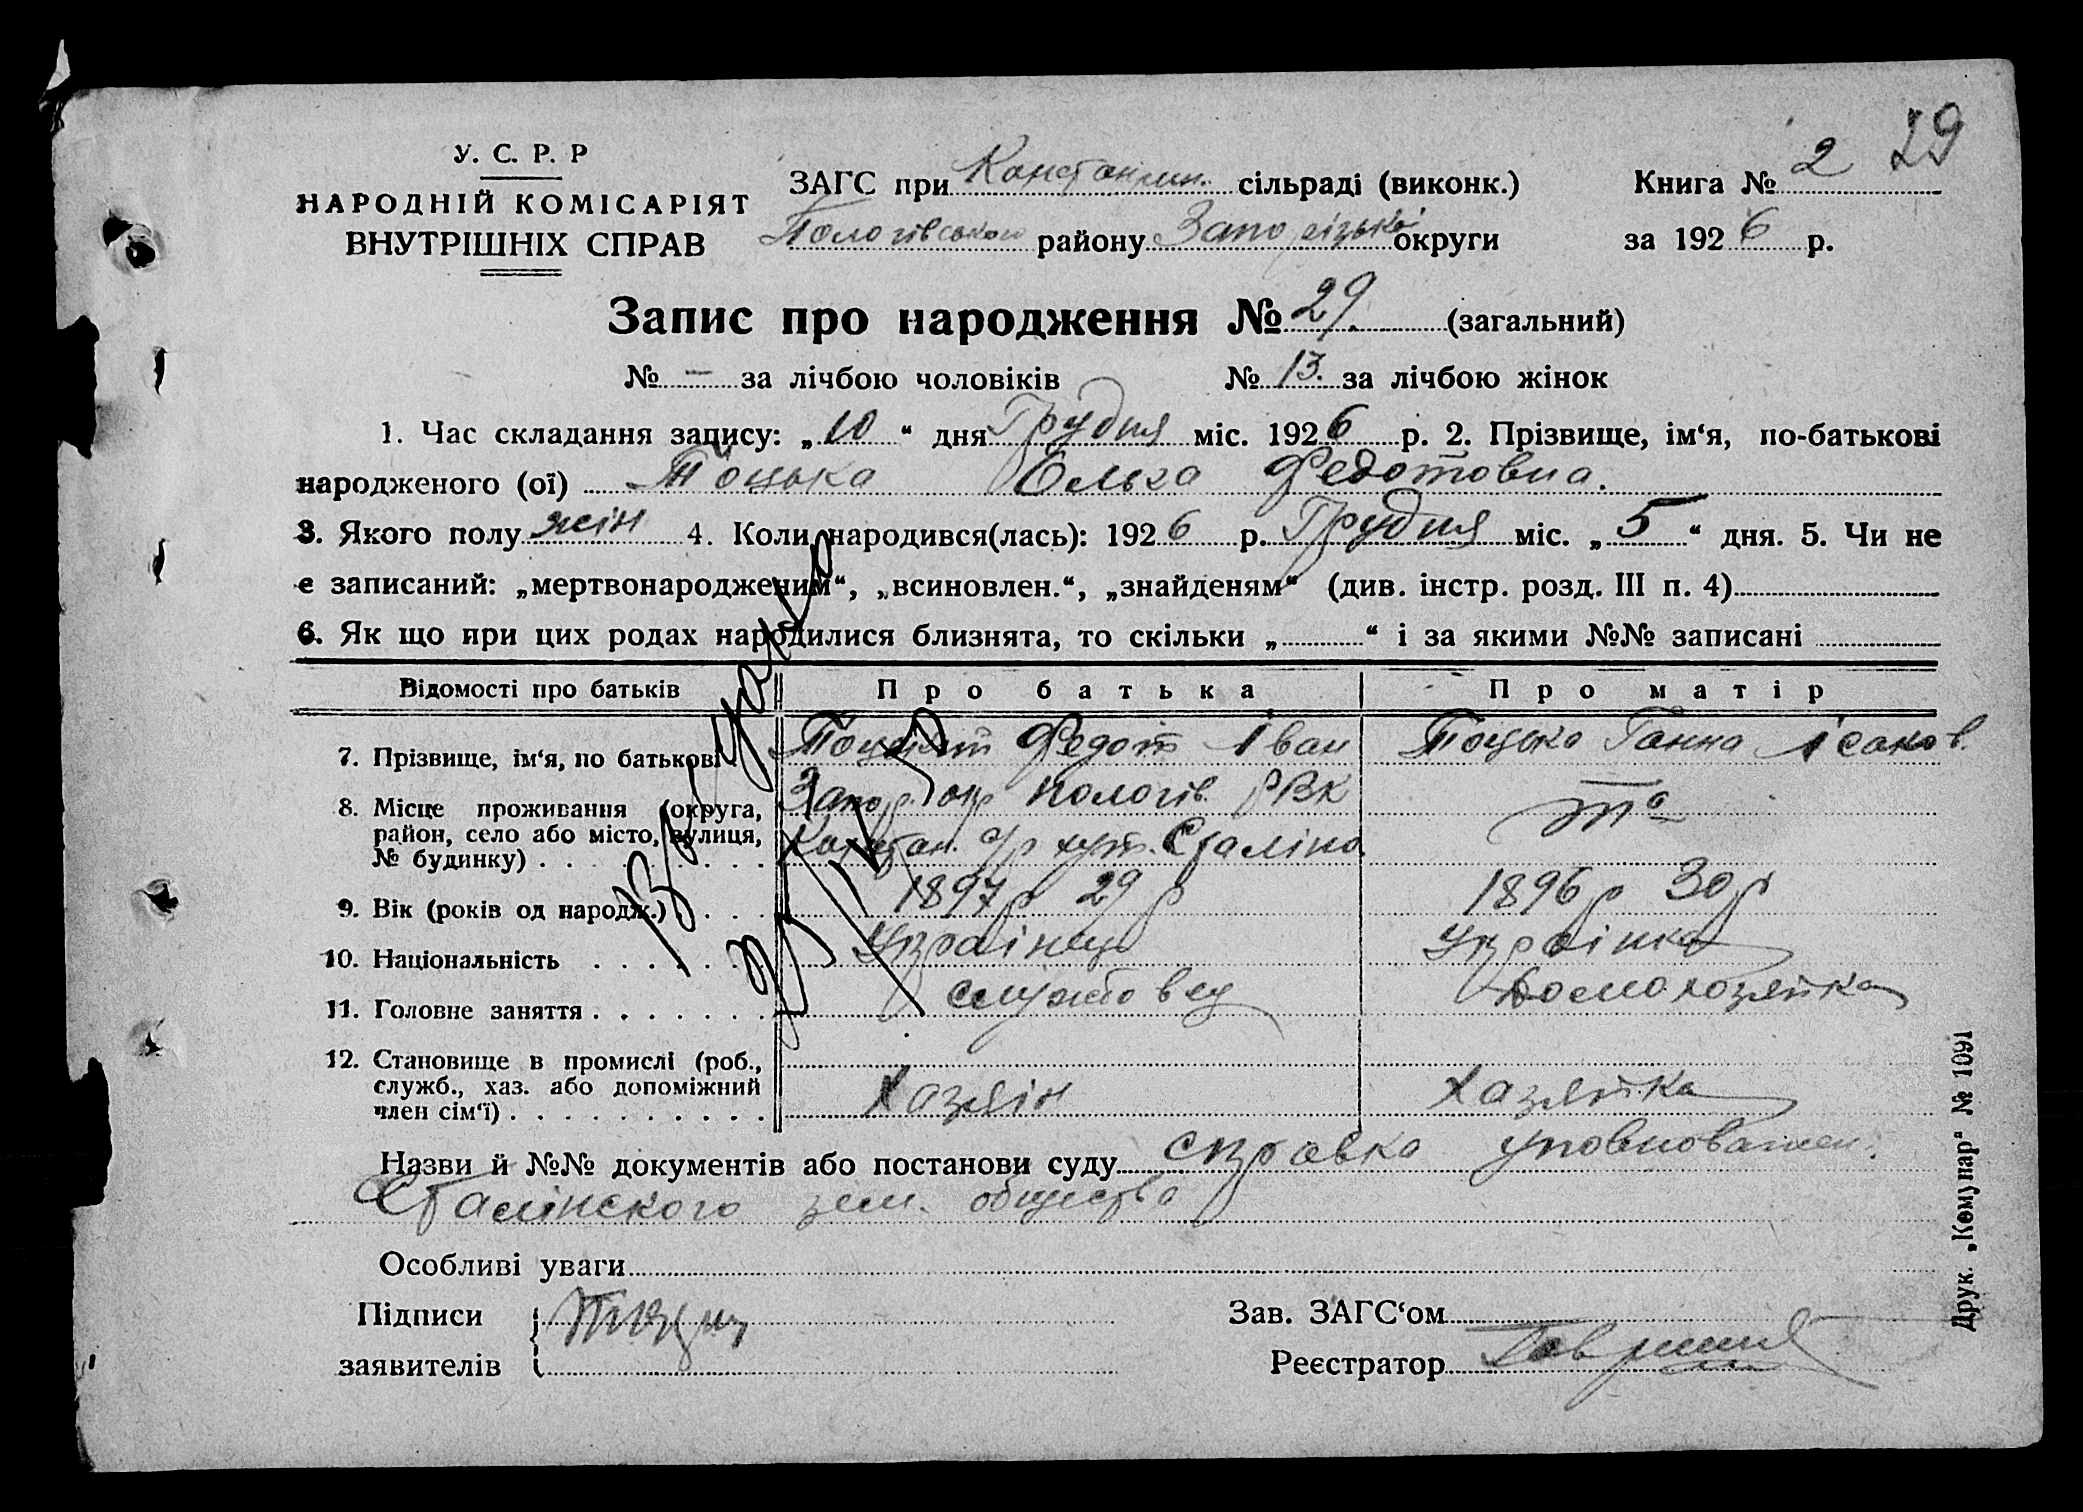 2 29
У. С. Р. Р
НАРОДНІЙ КОМІСАРІЯТ
ВНУТРІШНІХ СПРАВ
ЗАГС при Константин. сільраді (виконк.) Книга №
Пологівського району Запорізької округи за 1926 р.
Запис про народження № 29. (загальний)
№ — за лічбою чоловіків № 13. за лічбою жінок
1. Час складання запису: „10“ дня Грудня міс. 1926 р. 2. Прізвище, ім‘я, по-батькові
народженого (ої) Тоцька Ольга Федотовна.
3. Якого полу жін 4. Коли народився(лась): 1926 р. Грудня міс. „5“ дня. 5. Чи не
є записаний: „мертвонародженим“, „всиновлен.“, „знайденям“ (див. інстр. розд. III п. 4)
6. Як що при цих родах народилися близнята, то скільки „ “ і за якими №№ записані
Відомості про батьків Про батька Про матір
7. Прізвище, ім‘я, по батькові Тоцький Федот Іван Тоцька Ганна Ісаков.
8. Місце проживання (округа, Запор. окр Пологів. РВК та
район, село або місто, вулиця, Констан. с/р хут. Сталіна
№ будинку)
9. Вік (років од народж.) 1897 р 29 р 1896 р 30 р
10. Національність Українец Українка
11. Головне заняття службовец Домохозяйка
12. Становище в промислі (роб.,
служб., хаз. або допоміжний Хазяїн Хазяйка
член сім‘ї)
Назви й №№ документів або постанови суду справка уповноважен.
Сталінского зем. общества
Особливі уваги
Підписи Зав. ЗАГС‘ом
заявителів Реєстратор
Друк. „Комунар“ № 1091